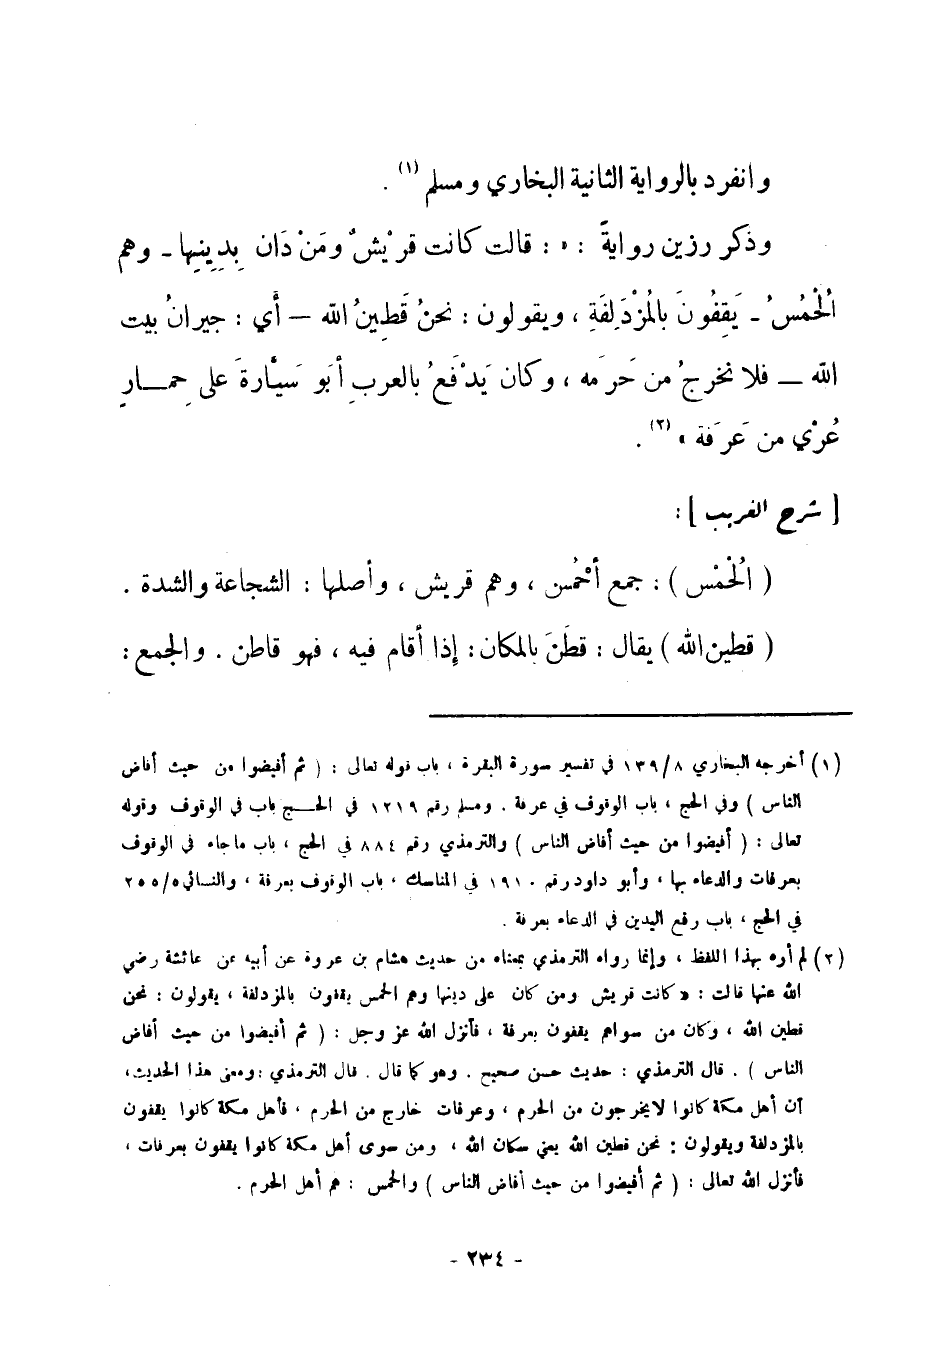 وانفرد بالرواية الثانية البخاري ومسلم (١) .
وذكر رزين روايةً : « : قالت كانت قريْشٌ ومَنْ دَان بِدِينِها ـ وهم
الُحْمْسُ ـ يَقِفُونَ بالُمزْدَلِفَةِ ، ويقولون : نحنُ قَطِينُ الله — أَي : جيرانُ بيت
الله — فلا نخرجُ من حَرَمه ، وكان يَدْفَعُ بالعربِ أبو سَيَّارةَ على حِمــارٍ
عُرْي من عَرَفة » (٢) .
[ شرح الغريب ] :
( الُحْمْس ) : جمع أحْمُس ، وهم قريش ، وأصلها : الشجاعة والشدة .
( قطين الله ) يقال : قطَنَ بالمكان : إذا أقام فيه ، فهو قاطن . والجمع :
(١) أخرجه البخاري ٨/ ١٣٩ في تفسير سورة البقرة ، باب قوله تعالى : ( ثم أفيضوا من حيث أفاض
الناس ) وفي الحج ، باب الوقوف في عرفة . ومسلم رقم ١٢١٩ في الحــج باب في الوقوف وقوله
تعالى : ( أفيضوا من حيث أفاض الناس ) والترمذي رقم ٨٨٤ في الحج ، باب ما جاء في الوقوف
بعرفات والدعاء بها ، وأبو داود رقم ١٩١٠ في المناسك ، باب الوقوف بعرفة ، والنسائي ٥/ ٢٥٥
في الحج ، باب رفع اليدين في الدعاء بعرفة .
(٢) لم أره بهذا اللفظ ، وإنما رواه الترمذي بمعناه من حديث هشام بن عروة عن أبيه عن عائشة رضي
الله عنها قالت : « كانت قريش ومن كان على دينها وهم الحمس يقفون بالمزدلفة ، يقولون : نحن
قطين الله ، وكان من سواهم يقفون بعرفة ، فأنزل الله عز وجل : ( ثم أفيضوا من حيث أفاض
الناس ) . قال الترمذي : حديث حسن صحيح . وهو كما قال . قال الترمذي : ومعنى هذا الحديث ،
أن أهل مكة كانوا لا يخرجون من الحرم ، وعرفات خارج من الحرم ، فأهل مكة كانوا يقفون
بالمزدلفة ويقولون : نحن قطين الله يعني سكان الله ، ومن سوى أهل مكة كانوا يقفون بعرفات ،
فأنزل الله تعالى : ( ثم أفيضوا من حيث أفاض الناس ) والحمس : هم أهل الحرم .
- ٢٣٤ -